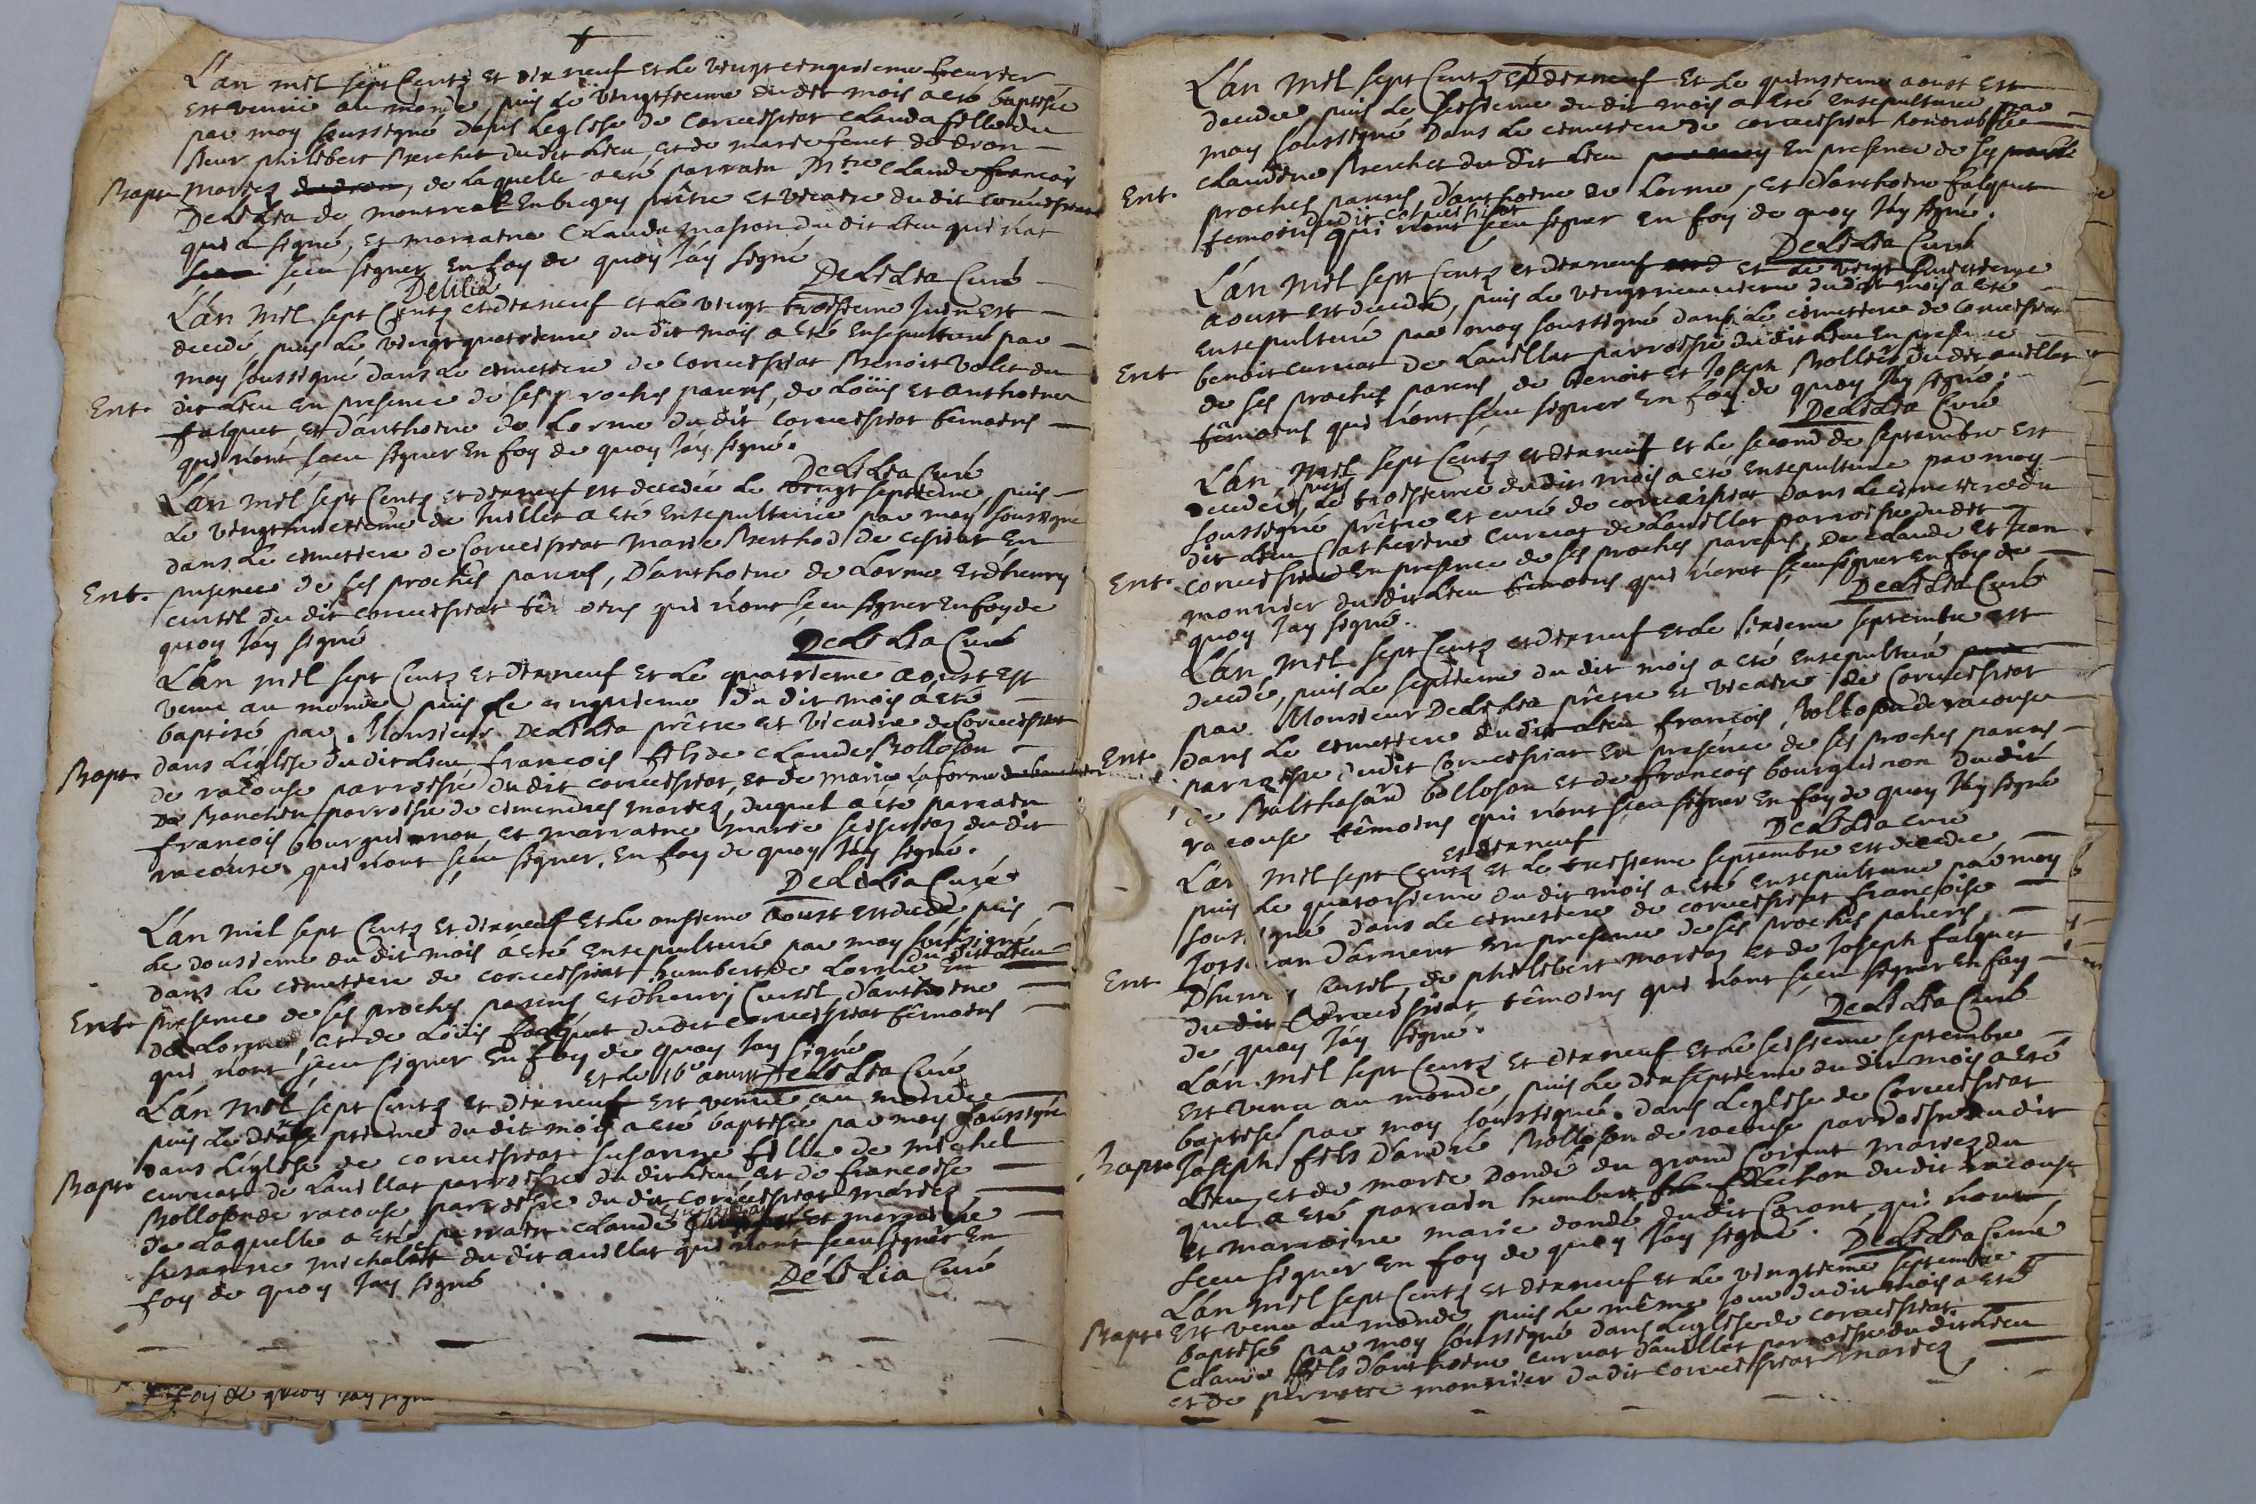 L'an mil sept Centz et dixneuf et le vingtcinquieme feuvrier
est venuë au monde, puis le vingtsieme du dit mois a eté baptisée
par moy soussigné dans Leglise de Corveissiat Clauda fille du
sieur philibert Berchet du dit Lieu et de marie fenet de dron
Bapt. mariez, de laquelle a eté parrain Mre Claude françois
DeLiLia de montreal En bugey prêtre et vicaire du dit Corveissiat
qui a signé, et marraine Clauda masson du dit Lieu qui n'at
sceu signer En foy de quoy J'ay signé
Delilia
DeLiLia Curé
L'an Mil sept Centz et dixneuf et Le vingt troisieme Juin Est
decedé, puis Le vingtquatrieme du dit mois a eté Ensepulturé par
moy soussigné dans Le cimetiere de Corveissiat Benoit Volet du
Ent. dit Lieu En presence de ses proches parens, de Loüis et anthoine
falquet, et d'anthoine de Lorme du dit Corveissiat têmoins
qui n'ont sceu signer En foy de quoy J'ay signé.
DeLiLia Curé
L'an mil sept Centz et dixneuf est decedée Le vingtseptieme, puis
Le vingthuictieme de Juillet a eté Ensepulturée par moy soussigné
dans Le cimetiere de Corveissiat Marie Berthod De En
Ent. presence de ses proches parens, D'anthoine de Lorme et d'henry
curtil du dit corveissiat têmoins qui n'ont sceu signer En foy de
quoy J'ay signé
DeLiLia Curé
L'an mil sept Centz et dixneuf et Le quatrieme aoust est
venu au monde, puis Le cinquieme du dit mois a eté
baptisé par Monsieur DeLiLia prêtre et vicaire de Corveissiat
Bapt. dans L'église du dit Lieu françois fils de Claude Bolloson
de racouse parroisse du dit corveissiat, et de marie Laforme
De Banchin parroisse de cimendres mariez, duquel a eté parrain
françois bourguignon et marraine marie du dit
racouse, qui n'ont sceu signer, En foy de quoy J'ay signé.
DeLiLia Curé
L'an mil sept Centz et dixneuf et Le onsieme aoust est decedé puis
Le dousieme du dit mois a eté Ensepulturé par moy soussigné
dans Le cimetiere de corveissiat humbert de Lorme du dit Lieu En
Ent. presence de ses proches parens et d'henry Curtil, d'anthoine
de Lorme, et de Loüis falquet du dit Corveissiat têmoins
qui n'ont sceu signer En foy de quoy J'ay signé
DeLiLia Curé
et le 16e aoust
L'an Mil sept Centz et dixneuf est venüe au monde
puis Le dixseptieme du dit mois a eté baptisée par moy soussigné
dans L'église de corveissiat susanne fille de Michel
Bapt. curvat de Lavillat parroisse du dit Lieu et de françoise
Bolloson de racouse parroisse du dit corveissiat mariez
de Laquelle a eté parrain Claude et marraine
susanne michalet du dit avillat qui n'ont sceu signer En
foy de quoy J'ay signé
DeLiLia Curé
foy de quoy J'ay signé
L'an Mil sept Centz et dixneuf et Le quinsieme aoust est
decedée, puis Le seisieme du dit mois a eté Ensepulturée par
moy soussigné dans Le cimetiere de corveissiat honorable
claudine Berchet du dit Lieu En presence de ses
Ent. proches parens, d'anthoine de Lorme, et d'anthoine falquet
du dit corveissiat
temoins qui n'ont sceu signer En foy de quoy J'ay signé.
DeLiLia Curé
L'an Mil sept Centz et dixneuf et Le vingt huictieme
aoust est decedé, puis Le vingtneuvieme du dit mois a eté
Ensepulturé par moy soussigné dans Le cimetiere de Corveissiat
Ent. benoit curvat de Lavillat parroisse du dit Lieu En presence
de ses proches parens, de benoit et Joseph Bollier du dit avillat
têmoins qui n'ont sceu signer En foy de quoy J'ay signé.
DeLiLia Curé
L'an Mil sept Centz et dixneuf et Le second de septembre est
decedée, puis Le troisieme du dit mois a eté Ensepulturée par moy
soussigné prêtre et curé de corveissiat dans Le cimetiere du
dit Lieu Catherine curvat de Lavillat parroisse du dit
Ent. corveissiat En presence de ses proches parens, De Claude et Jean
monnier du dit Lieu têmoins qui n'ont sceu signer En foy de
quoy J'ay signé.
DeLiLia Curé
L'an Mil sept Centz et dixneuf et Le sixieme septembre est
decedé, puis Le septieme du dit mois a eté Ensepulturé
par Monsieur DeLiLia prêtre et vicaire de Corveissiat
dans Le cimetiere du dit Lieu françois Bolloson de racouse
Ent. parroisse du dit Corveissiat En presence de ses proches parens
de Balthasard bolloson et de françois bourguinon du dit
racouse têmoins qui n'ont sceu signer En foy de quoy J'ay signé
DeLiLia curé
et dixneuf
L'an Mil sept Centz et Le treisieme septembre est decedée
puis Le quatorsieme du dit mois a eté Ensepulturée par moy
soussigné dans Le cimetiere de corveissiat françoise
d'arnent En presence de ses proches parens,
Ent. D'henry Curtil, de philibert mariez et de Joseph falquet
du dit Corveissiat têmoins qui n'ont sceu signer En foy
de quoy J'ay signé.
DeLiLia Curé
L'an Mil sept Centz et dixneuf et Le seisieme septembre
Est venu au monde, puis Le dixseptieme du dit mois a eté
baptisé par moy soussigné dans Leglise de Corveissiat
Bapt. Joseph fils d'andré Bolloson de racouse parroisse du dit
Lieu, et de marie dondé du grand Corent mariez du
quel a eté parrain humbert du dit racouse
et marraine marie dondé du dit Corant, qui n'ont
sceu signer En foy de quoy J'ay signé.
DeLiLia Curé
L'an Mil sept Centz et dixneuf et Le vingtieme septembre
Bapt. Est venu au monde puis Le même Jour du dit mois a eté
baptisé par moy soussigné dans Leglise de corveissiat
Claude fils d'anthoine curvat d'avillat parroisse du dit Lieu
et de pernette monnier du dit corveissiat mariez,